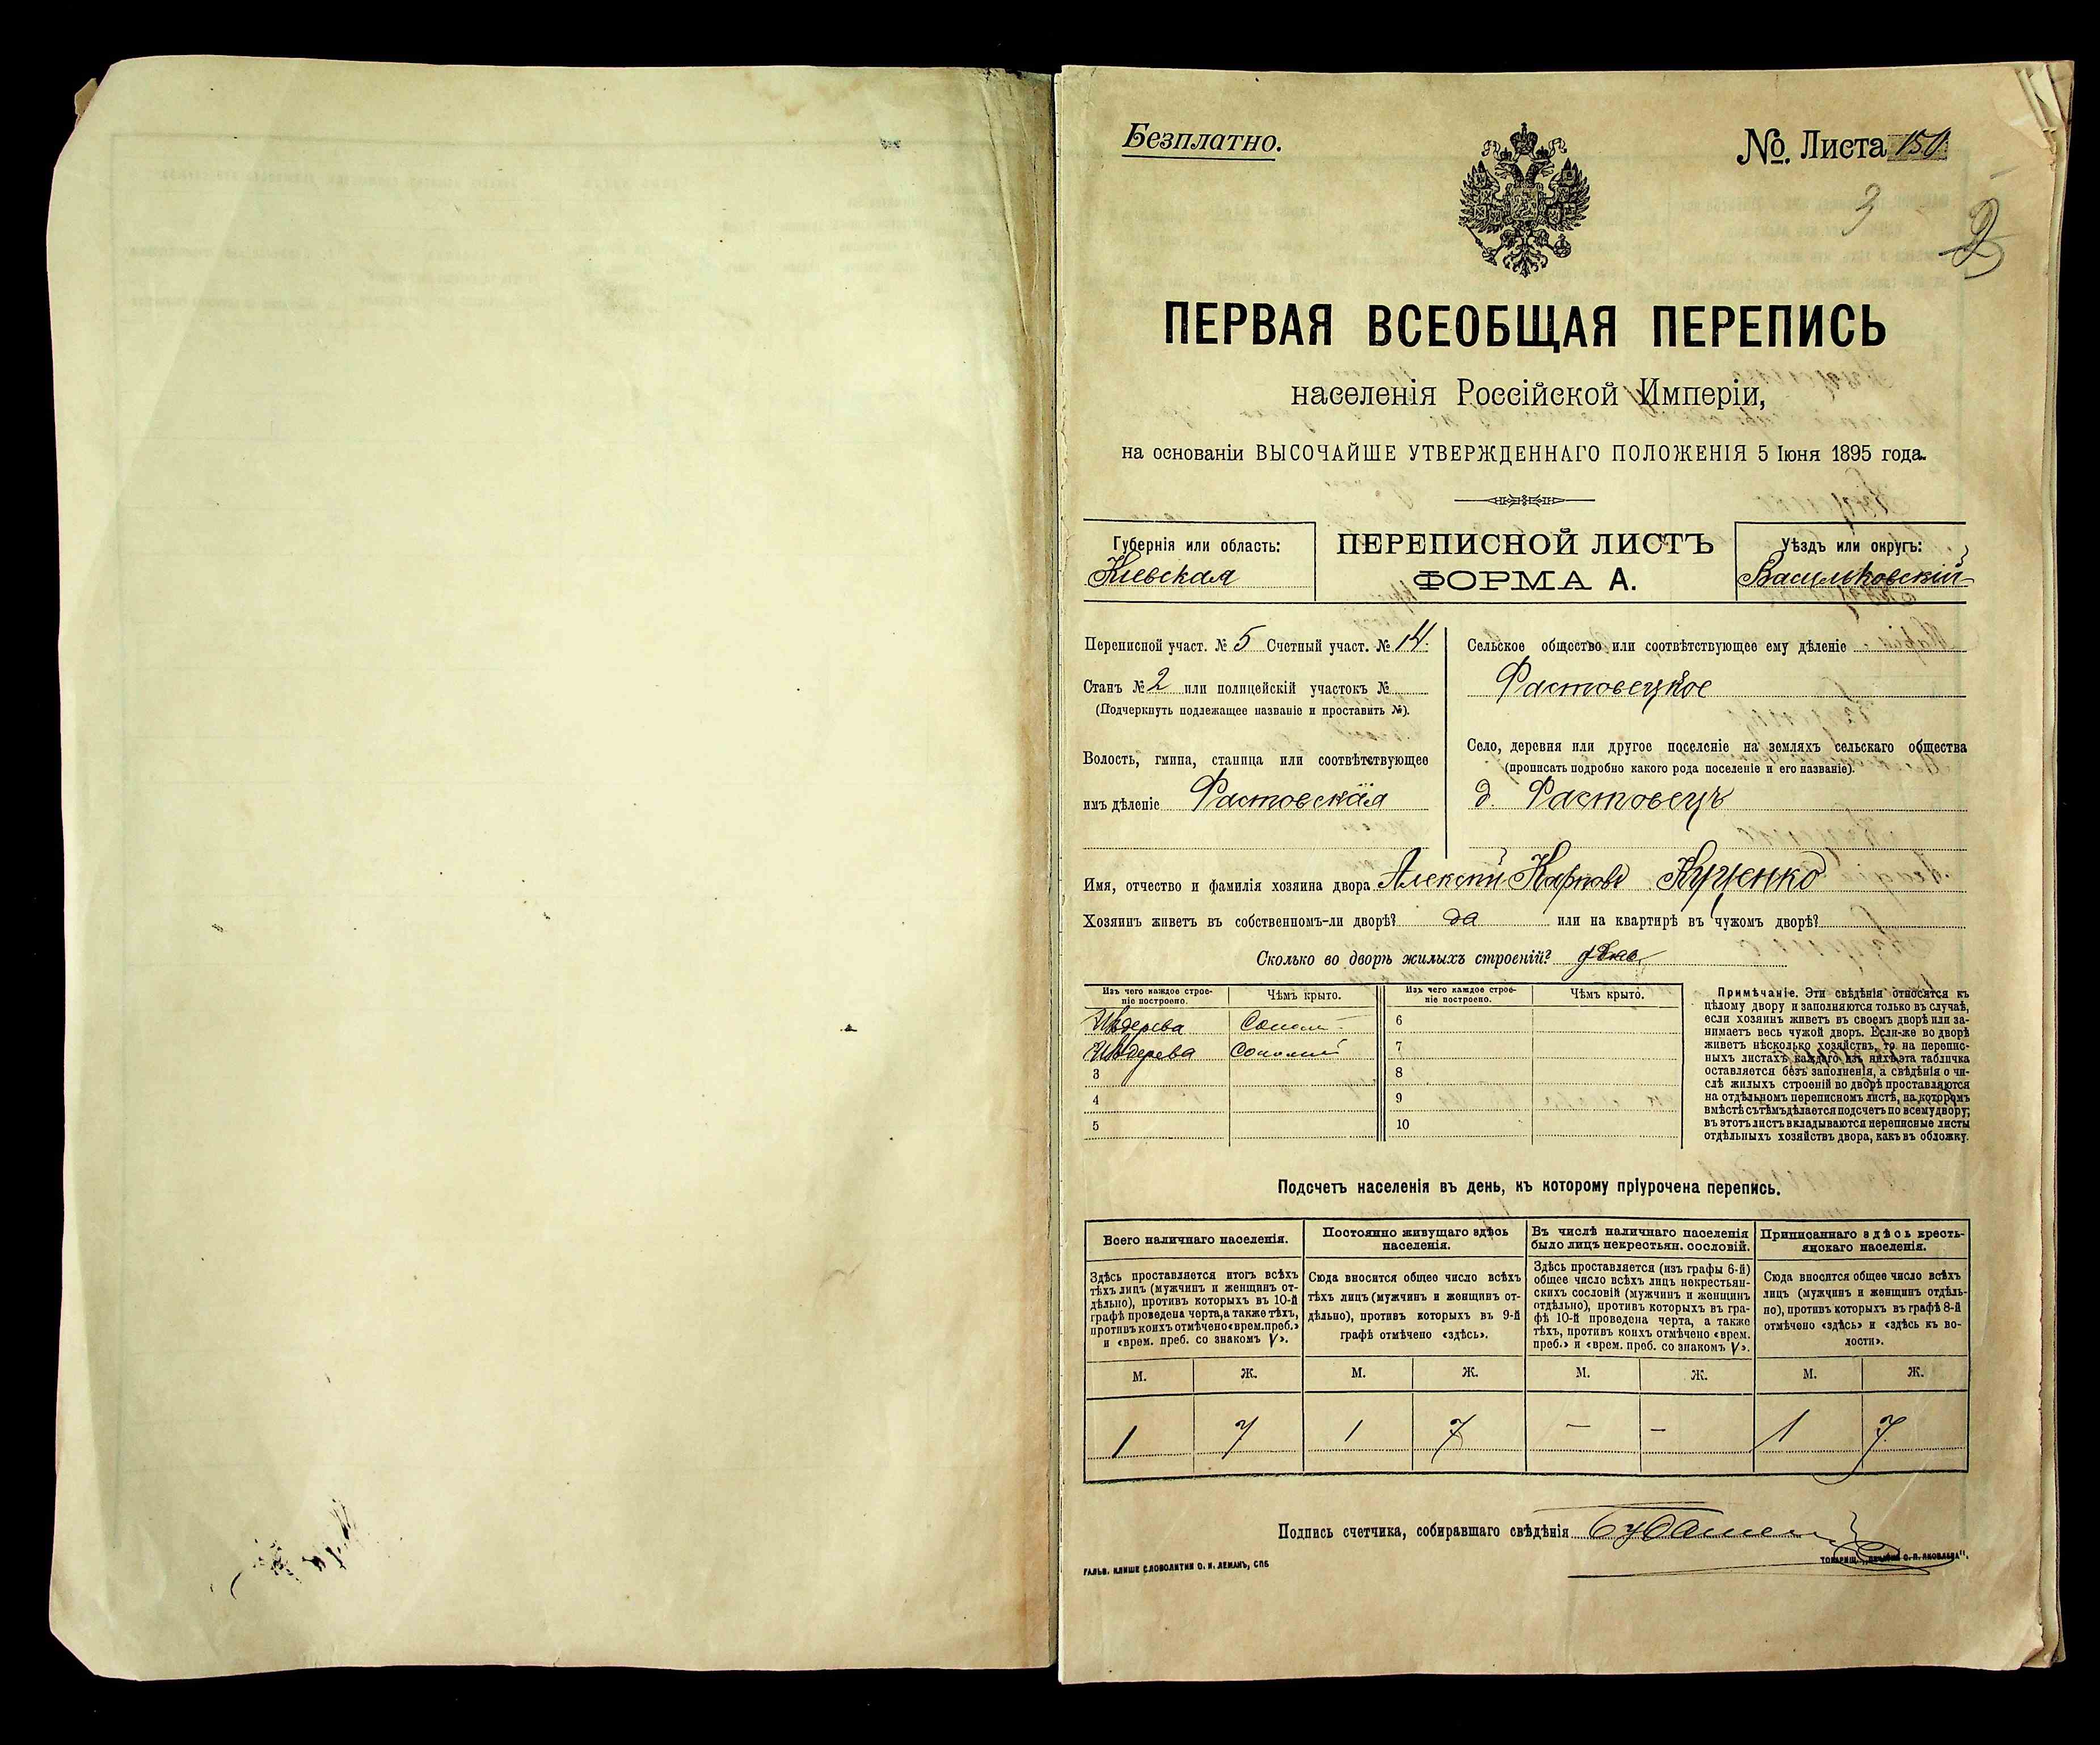 Безплатно.
№. Листа 150
3
2
ПЕРВАЯ ВСЕОБЩАЯ ПЕРЕПИСЬ
населенія Россійской Имперіи,
на основаніи ВЫСОЧАЙШЕ УТВЕРЖДЕННАГО ПОЛОЖЕНІЯ 5 Іюня 1895 года.
Губернія или область:
Кіевская
ПЕРЕПИСНОЙ ЛИСТЪ
ФОРМА А.
Уѣздъ или округъ:
Васильковскій
Переписной участ. № 5 Счетный участ. № 14.
Станъ № 2 или полицейскій участокъ №
(Подчеркнуть подлежащее названіе и проставить №).
Волость, гмина, станица или соотвѣтствующее
имъ дѣленіе Фастовская
Сельское общество или соотвѣтствующее ему дѣленіе
Фастовецкое
Село, деревня или другое поселеніе на земляхъ сельскаго общества
(прописать подробно какого рода поселеніе и его названіе).
д. Фастовецъ
Имя, отчество и фамилія хозяина двора Алексѣй Карповъ Куценко
Хозяинъ живетъ въ собственномъ-ли дворѣ? да или на квартирѣ въ чужомъ дворѣ?
Сколько во дворѣ жилыхъ строеній? два
Изъ чего каждое строе-
ніе построено.
Чѣмъ крыто.
Изъ чего каждое строе-
ніе построено.
Чѣмъ крыто.
Изъ дерева Солом
Изъ дерева Соломы
3
4
5
6
7
8
9
10
Примѣчаніе. Эти свѣдѣнія относятся къ
цѣлому двору и заполняются только въ случаѣ,
если хозяинъ живетъ въ своемъ дворѣ или за-
нимаетъ весь чужой дворъ. Если-же во дворѣ
живетъ нѣсколько хозяйствъ, то на перепис-
ныхъ листахъ каждаго изъ нихъ эта табличка
оставляется безъ заполненія, а свѣдѣнія о чи-
слѣ жилыхъ строеній во дворѣ проставляются
на отдѣльномъ переписномъ листѣ, на которомъ
вмѣстѣ съ тѣмъ дѣлается подсчетъ по всему двору;
въ этотъ листъ вкладываются переписные листы
отдѣльныхъ хозяйствъ двора, какъ въ обложку.
Подсчетъ населенія въ день, къ которому пріурочена перепись.
Всего наличнаго населенія.
Здѣсь проставляется итогъ всѣхъ
тѣхъ лицъ (мужчинъ и женщинъ от-
дѣльно), противъ которыхъ въ 10-й
графѣ проведена черта, а также тѣхъ,
противъ коихъ отмѣчено «врем. преб.»
и «врем. преб. со знакомъ V».
Постоянно живущаго здѣсь
населенія.
Сюда вносится общее число всѣхъ
тѣхъ лицъ (мужчинъ и женщинъ от-
дѣльно), противъ которыхъ въ 9-й
графѣ отмѣчено «здѣсь».
Въ числѣ наличнаго населенія
было лицъ некрестьян. сословій.
Здѣсь проставляется (изъ графы 6-й)
общее число всѣхъ лицъ некрестьян-
скихъ сословій (мужчинъ и женщинъ
отдѣльно), противъ которыхъ въ гра-
фѣ 10-й проведена черта, а также
тѣхъ, противъ коихъ отмѣчено «врем.
преб.» и «врем. преб. со знакомъ V».
Приписаннаго здѣсь кресть-
янскаго населенія.
Сюда вносится общее число всѣхъ
лицъ (мужчинъ и женщинъ отдѣль-
но), противъ которыхъ въ графѣ 8-й
отмѣчено «здѣсь» и «здѣсь къ во-
лости».
М. Ж. М. Ж. М. Ж. М. Ж.
1 7 1 7 — — 1 7
Подпись счетчика, собиравшаго свѣдѣнія
ГАЛЬВ. КЛИШЕ СЛОВОЛИТНИ О. И. ЛЕМАНЪ, СПБ
ТОВАРИЩ. „ПЕЧАТНЯ С. П. ЯКОВЛЕВА".